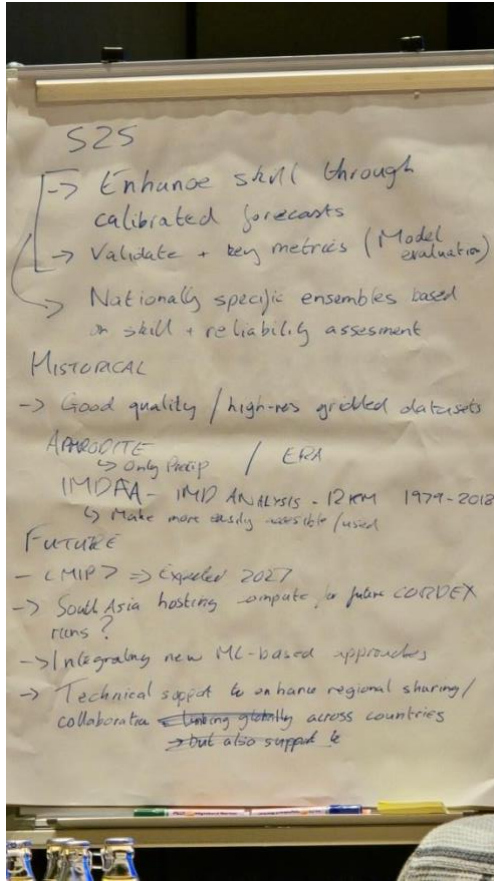 S2S
-> Enhance skill through
calibrated forecasts
-> Validate + key metrics (Model
evaluation)
-> Nationally specific ensembles based
on skill + reliability assesment
HISTORICAL
-> Good quality / high-res gridded datasets
APHRODITE / ERA
↳ Only Precip
IMDAA - IMD ANALYSIS - 12KM 1979-2018
↳ Make more easily accessible / used
FUTURE
- CMIP7 => Expected 2027
-> South Asia hosting compute for future CORDEX
runs?
-> Integrating new ML-based approaches
-> Technical support to enhance regional sharing/
collaboration linking globally across countries
-> but also support to